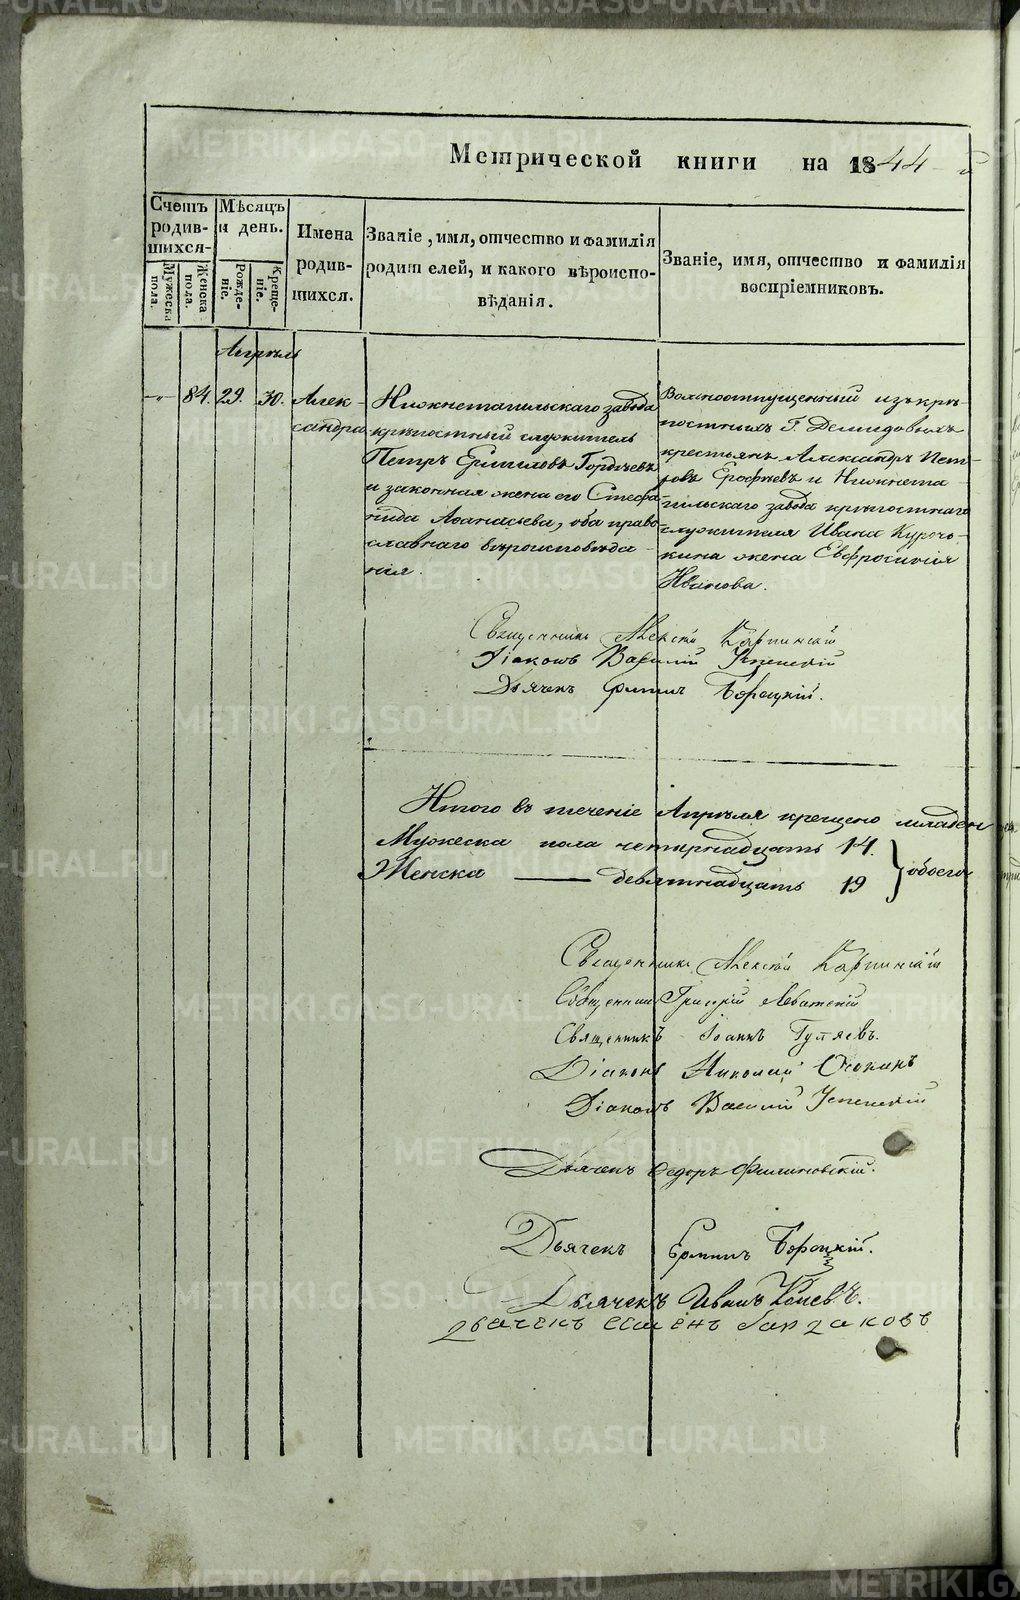 Метрической книги на 1844-й
Счетъ родив-шихся-
Мужеска пола.
Женска пола.
Мѣсяцъ и день.
Рожде-ніе.
Креще-ніе.
Имена родив-шихся.
Званіе, имя, отчество и фамилія
родителей, и какого вѣроиспо-
вѣданія.
Званіе, имя, отчество и фамилія
воспріемниковъ.
Апрѣль
-"- 84. 29. 30.
Алек-
сандра
Нижнетагильскаго завода
крѣпостный служитель
Петръ Ермиловъ Гордѣевъ
и законная жена его Стефа-
нида Аѳанасьева, оба право-
славнаго вѣроисповѣда-
нія.
Вольноотпущенный изъ крѣ-
постныхъ Г. Демидовыхъ
крестьянъ Александръ Пет-
ровъ Ерофѣевъ и Нижнета-
гильскаго завода крѣпостнаго
служителя Ивана Курочь-
кина жена Евфросинія
Иванова.
Священникъ Алексій Карпинскій
Діаконъ Василій Успенскій
Дьячекъ Ермилъ Борецкій.
Итого въ теченіе Апрѣля крещено младен
Мужеска пола четырнадцать 14.
Женска —— девятнадцать 19
обоего
Священникъ Алексій Карпинскій
Священникъ Григорій
Священникъ Іоаннъ Гуляевъ.
Діаконъ Николай
Діаконъ Василій Успенскій
Дьячекъ Ѳедоръ Филиновскій.
Дьячекъ Ермилъ Борецкій.
Дьячекъ Иванъ
дьячекъ
METRIKI.GASO-URAL.RU